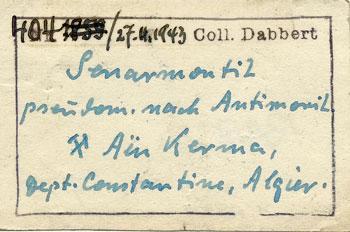 404 1859/27.4.1943 Coll. Dabbert
Senarmontit
pseudom. nach Antimonit
⚒ Aïn Kerma,
Dept. Constantine, Algier.